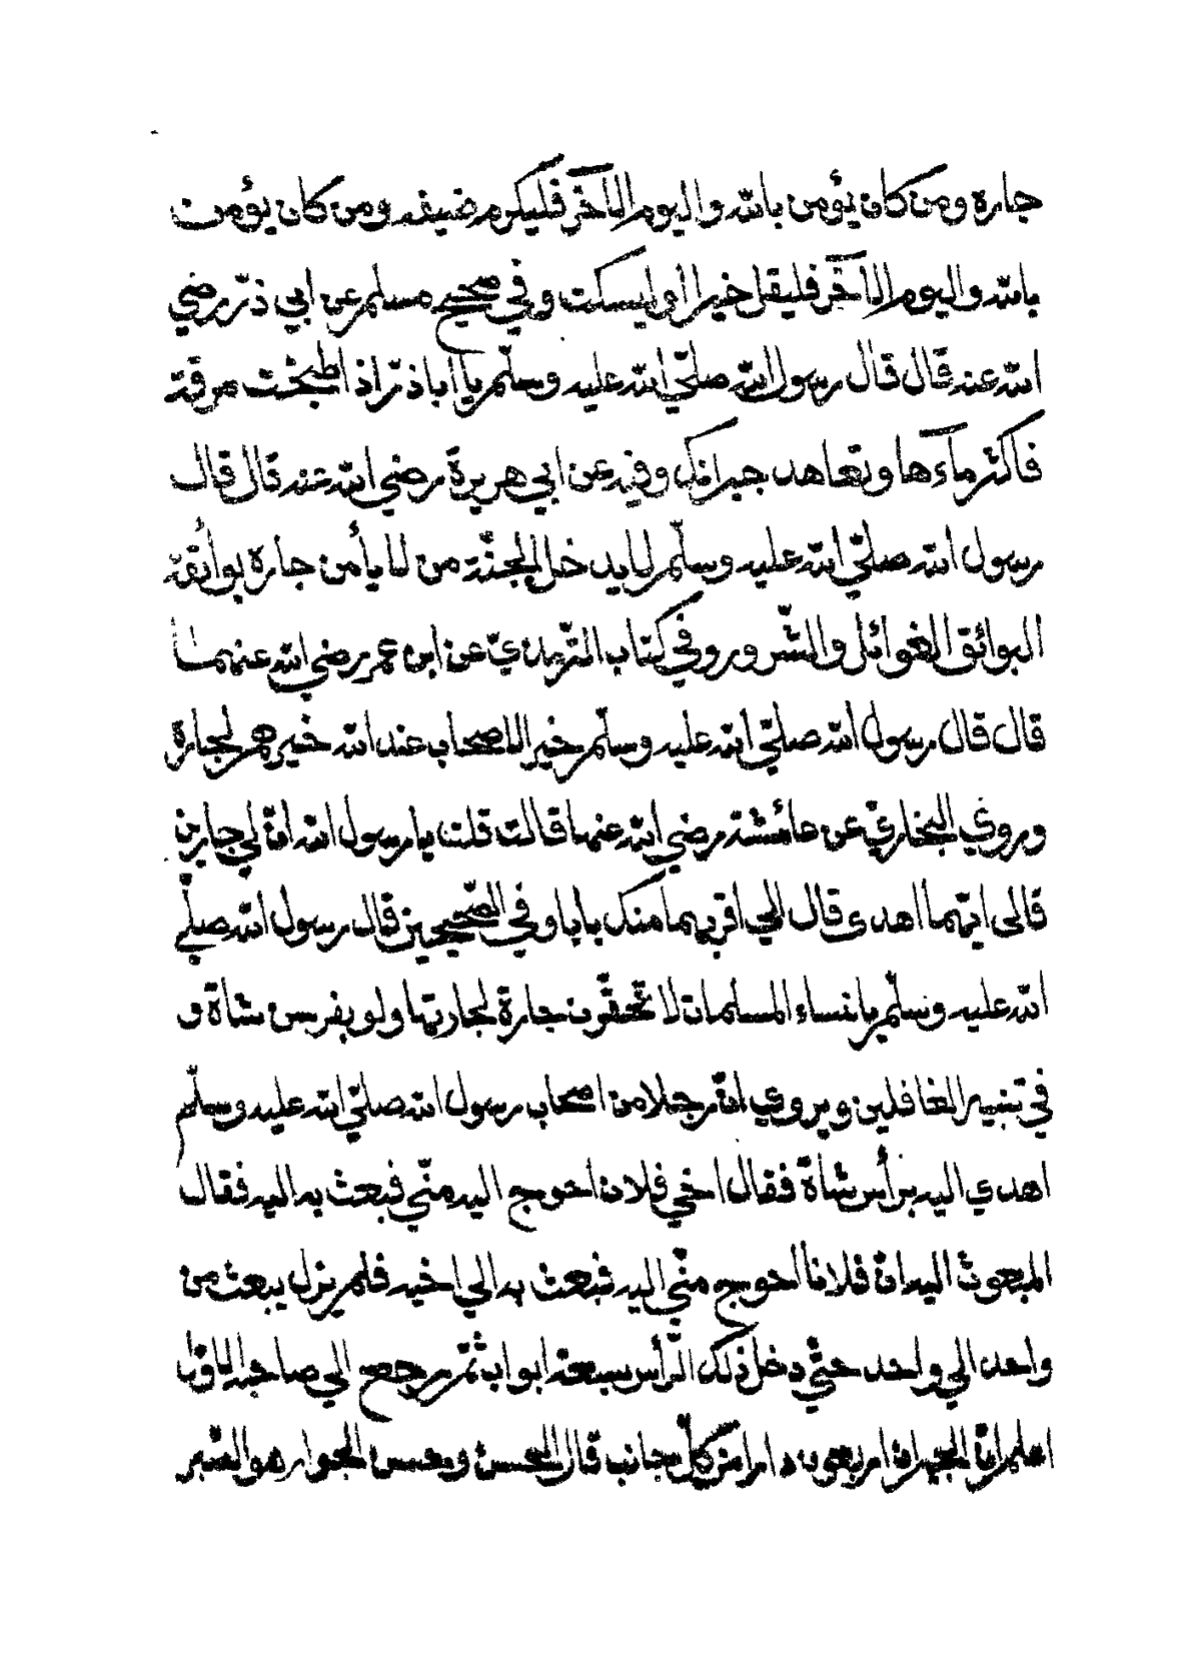 جاره ومن كان يؤمن بالله واليوم الآخر فليكرم ضيفه ومن كان يؤمن
بالله واليوم الآخر فليقل خيرا أو ليسكت وفي صحيح مسلم عن ابي ذرّ رضي
الله عنه قال قال رسول الله صلّي الله عليه وسلّم يا ابا ذرّ اذا طبخت مرقة
فاكثر مآءها وتعاهد جيرانك وفيه عن ابي هريرة رضي الله عنه قال قال
رسول الله صلّي الله عليه وسلّم لا يدخل الجنّة من لا يأمن جاره بوائقه
البوائق الغوائل والشّرور وفي كتاب التّرمذيّ عن ابن عمر رضي الله عنهما
قال قال رسول الله صلّي الله عليه وسلّم خير الاصحاب عند الله خيرهم لجاره
وروي البخاريّ عن عائشة رضي الله عنها قالت قلت يا رسول الله انّ لي جارين
قالي ايّهما اهدي قال الي اقربهما منك بابا وفي الصّحيحين قال رسول الله صلّي
الله عليه وسلّم يا نساء المسلمات لا تحقّرن جارة لجارتها ولو بفرسن شاة و
في تنبيه الغافلين ويروي انّ رجلا من اصحاب رسول الله صلّي الله عليه وسلّم
اهدي اليه برأس شاة فقال اخي فلان احوج اليه منّي فبعث به اليه فقال
المبعوث اليه انّ فلانا احوج منّي اليه فبعث به الي اخيه فلم يزل يبعث من
واحد الي واحد حتّي دخل ذلك الرّأس سبعة ابواب ثمّ رجع الي صاحبه الاوّل
اعلم انّ الجيران اربعون دارا من كلّ جانب قال الحسن وحسن الجوار هو الصّبر